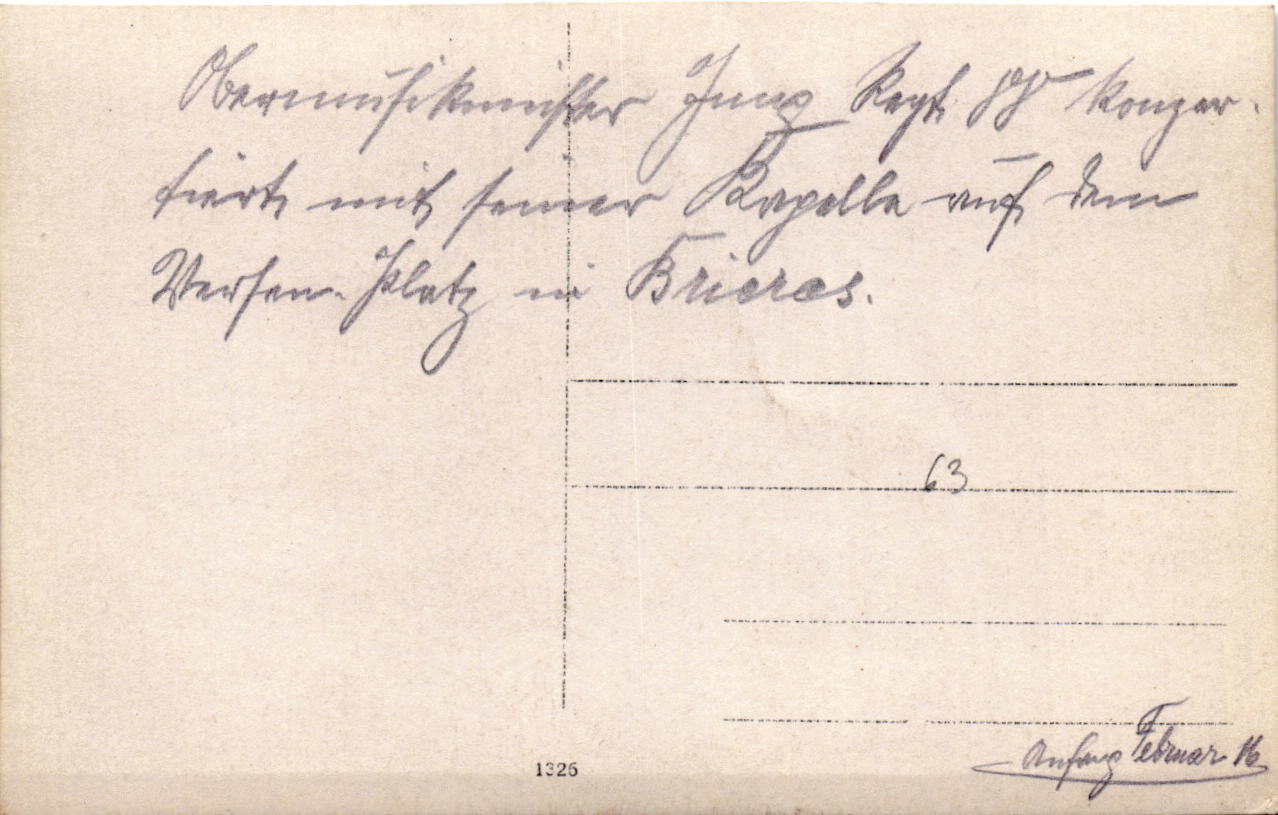 Obermusikmeister Jung Regt. 88 konzer-
tiert mit seiner Kapelle auf dem
Versen-Platz in Brieras.
63
1326
Anfang Februar 16